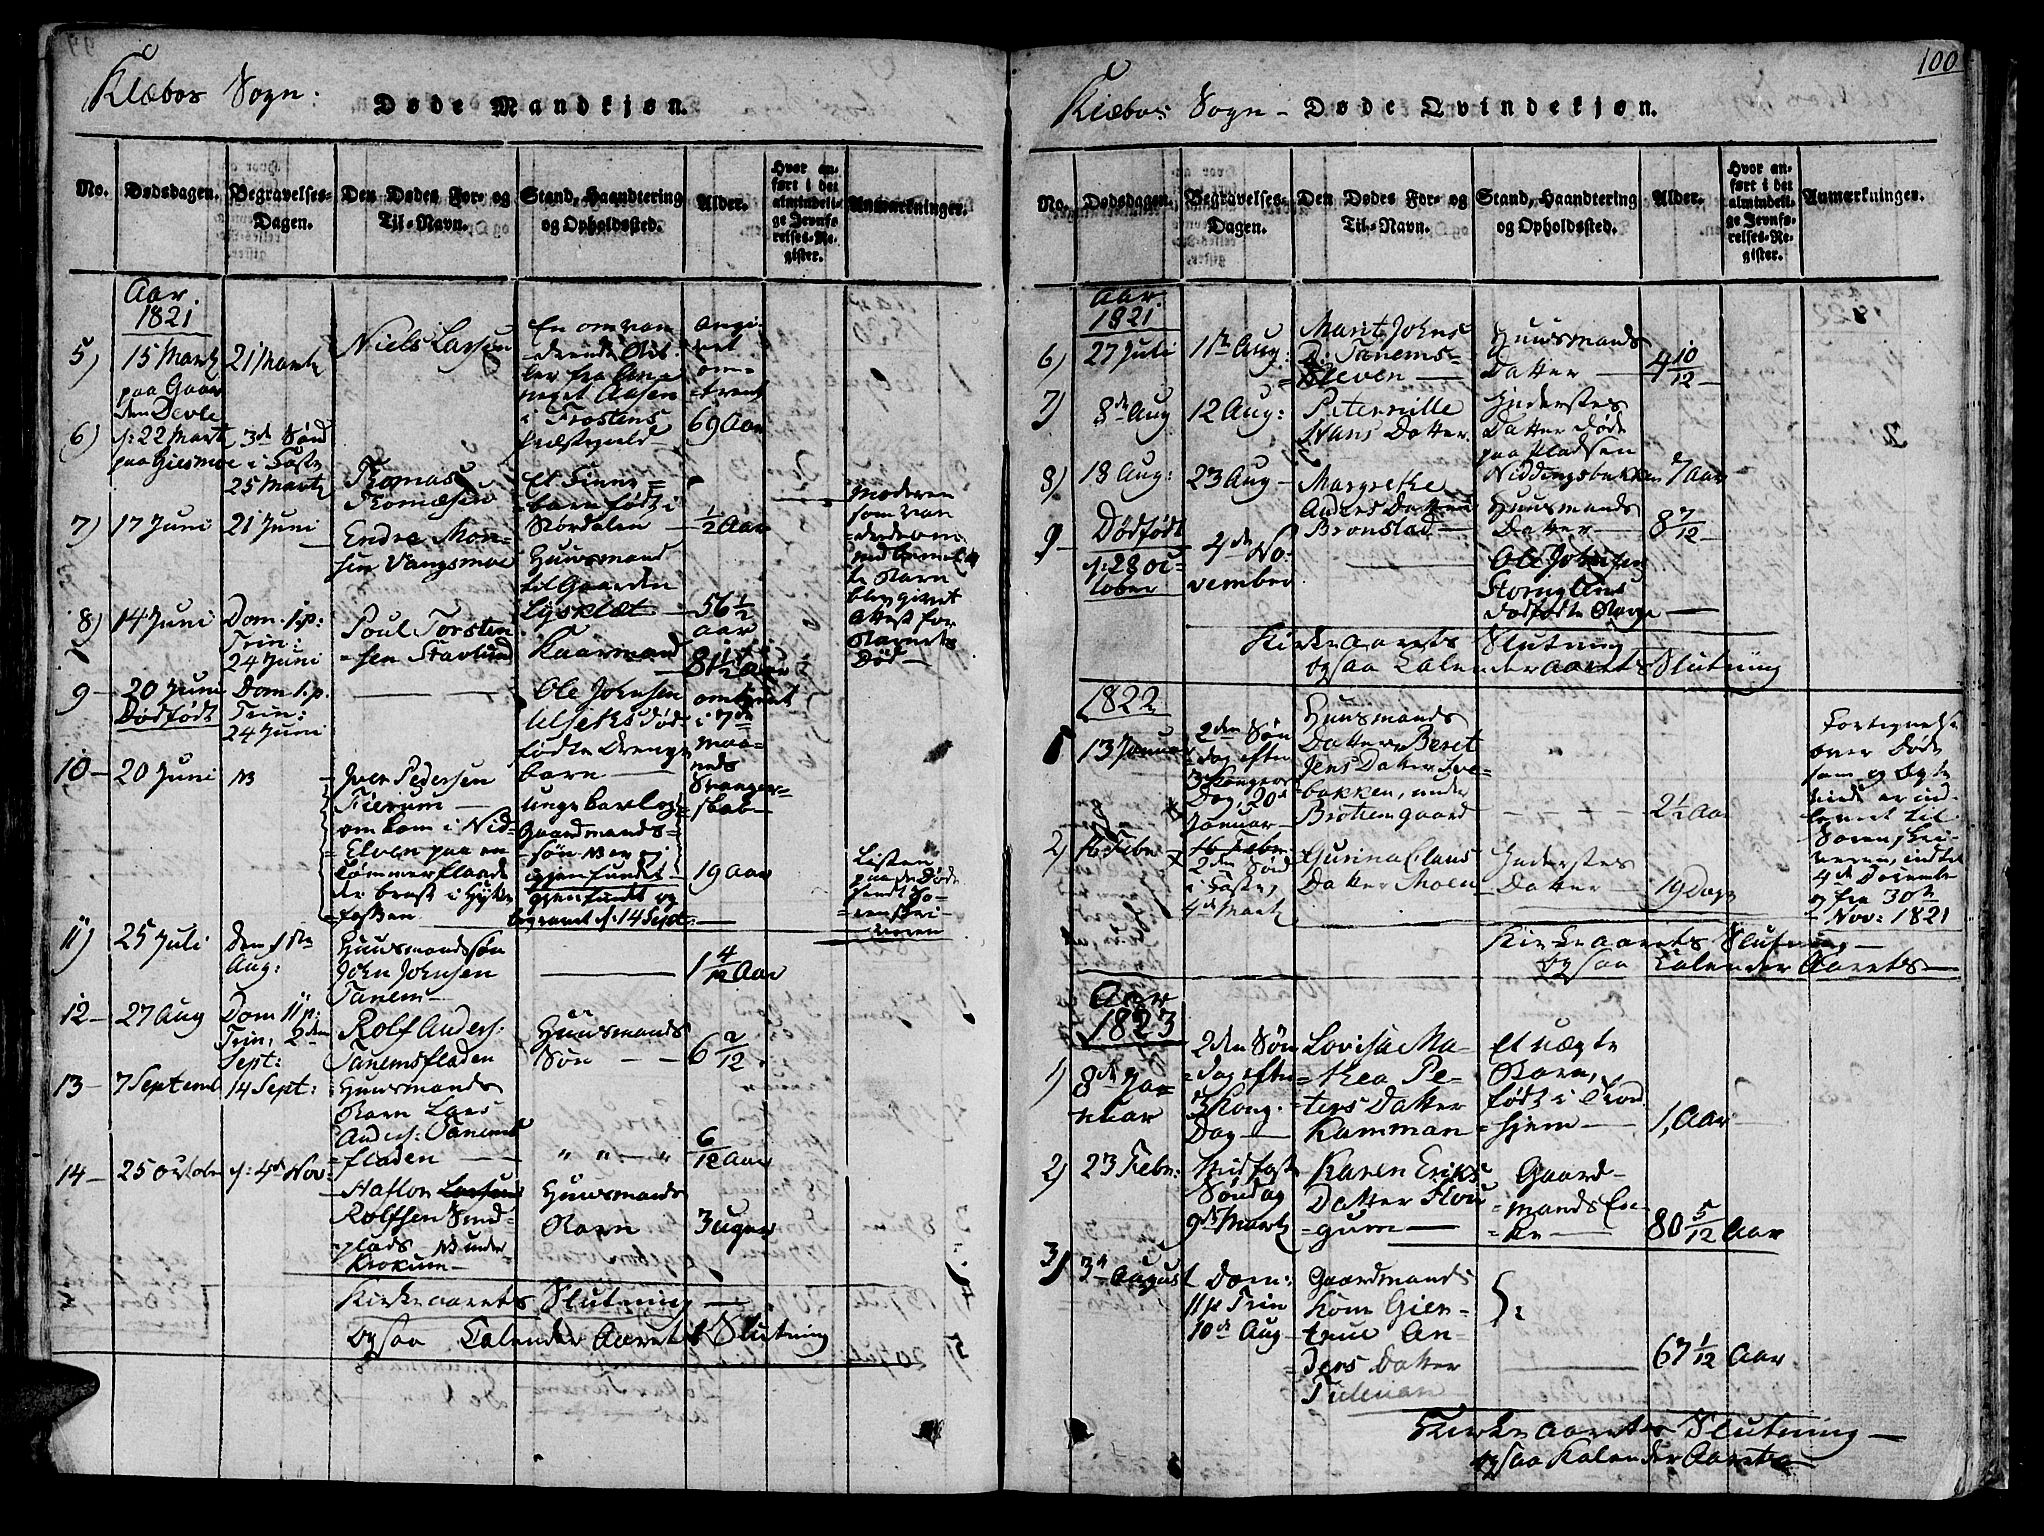 Klæboe Sogn:
Døde Mandkjøn.
No.
Dødsdagen.
Begravelses-
Dagen.
Den Dødes For- og
Til-Navn.
Stand, Haandtering
og Opholdssted.
Alder.
Hvor an-
ført i det
almindeli-
ge Jevnfø-
relses-Re-
gister.
Anmærkninger.
Aar.
1821
5)
15 Martz
paa Gaar
den Devle
21 Martz
Niels Larsen
En omvan
drende
fra
Aasen
i Frostens
Præstegield
Angi-
vet
om-
trent
69 Aar
6)
d: 22 Martz
3de Sønd
i Faste
25 Martz
Thomas
Thomæsen
et
barn født i
Stordalen
1/2 Aar
Moderen
som van
drede om
Barn
blev givet
Attest for
Barnets
Død
7)
17 Juni
21 Juni
Endre Mon-
sen Vangsmoe
Huusmand
til Gaarden
Lysklæt
56 1/2
aar
8)
14 Juni
Dom. 1. p:
Trin:
24 Juni
Poul Torsten
sen Stavlund
Kaarmand
81 1/2 Aar
9
20 Juni
Dødfødt
Dom 1. p.
Trin:
24 Juni
Ole Johnsen
Ulseths død
fødte Drenge
barn
omtrent
i 7de
Maa-
neds
Svanger-
skab
10
20 Juni
NB
Iver Pedersen
Tierum
om kom i Nid-
Elven paa en
Tømmerflaade
der brast i Hytte
fossen
unge karl og
Gaardmands-
søn NB er ei
igjenfundt
gjenfundt og
begravet d: 14 Sept:
19 Aar
Listen
paa de Døde
sendt So-
renskri-
veren
11)
25 Juli
Den 1ste
Aug:
Huusmandssøn
John Johnsen
Tanem
1 4/12 Aar
12
27 Aug
Dom 11 p:
Trin, 2den
Sept:
Rolf Anders:
Tanemsfladen
Huusmands
Søn
6 2/12
13
7 Septemb
14 Sept:
Huusmands
Barn Lars
Anders: Tanems
fladen
6/12 Aar
14
25 Octobr
d: 4de Nov:
Haflor Larsens
Rolfsen Smed-
plads NB under
Krokum
Huusmands
Barn
3 uger
Kirkeaarets Slutning
ogsaa Calender Aarets Slutning
100
Klæboe Sogn
Døde Qvindekjøn.
No.
Dødsdagen.
Begravelses-
Dagen.
Den Dødes For- og
Til-Navn.
Stand, Haandtering
og Opholdssted.
Alder.
Hvor an-
ført i det
almindeli-
ge Jevnfø-
relses-Re-
gister.
Anmærkninger.
Aar.
1821
6)
27 Juli
11te Aug:
Marit Johns
D: Tanems-
Eleven
Huusmands
Datter
4 10/12
7)
8de Aug
12 Aug:
Peternille
Hans Datter
Inderstes
Datter døde
paa Pladsen
Niddingsbakken
7 Aar
8)
18 Aug:
23 Aug
Margrethe
Anders Datter
Bronstad
Huusmands
Datter
8 7/12
9
Dødfødt
d: 28 Oc-
tober
4de No-
vember
Ole Johnsen
dødfødte
Kirkeaarets Slutning
ogsaa Calenderaarets Slutning
1822
1
13 Januar
2den Søn
dag efter
3 Konger
Dag, 20de
Januar
Huusmands
Datter Beret
Jens Datter
bakken, under
Brøttemgaard
2 1/2 Aar
Fortegnelse
over Døde
som og Skifte
hvide er ind-
leveret til
Sorenskri-
veren, indtil
4de Decembr
og fra 30te
Nov: 1821
2)
16 Febr
2den Sønd
i Faste,
4de Martz
Gurina Claus
Datter Moen
Inderstes
Datter
19 Dage
Kirkeaarets Slutning
ogsaa Calender Aarets
Aar
1823
1)
8de Ja-
nuar
2den Søn
dag efter
3 Kong.
Dag
Lovisa Ma-
thea Pe-
ters Datter
Kamman
et uægte
Barn,
født i Trond
hjem
1, Aar
2)
23 Febr:
Midfaste
Søndag
9de Martz
Karen Eriks
Datter
gum
Gaard-
mands En-
ke
80 5/12 Aar
3)
3die August
Dom:
11 p Trin
10de Aug
Gaardmands
Kone Gier-
true An-
ders Datter
Tulluan
S:
67 1/12 Aar
Kirkeaarets Slutning
ogsaa Kalender Aarets